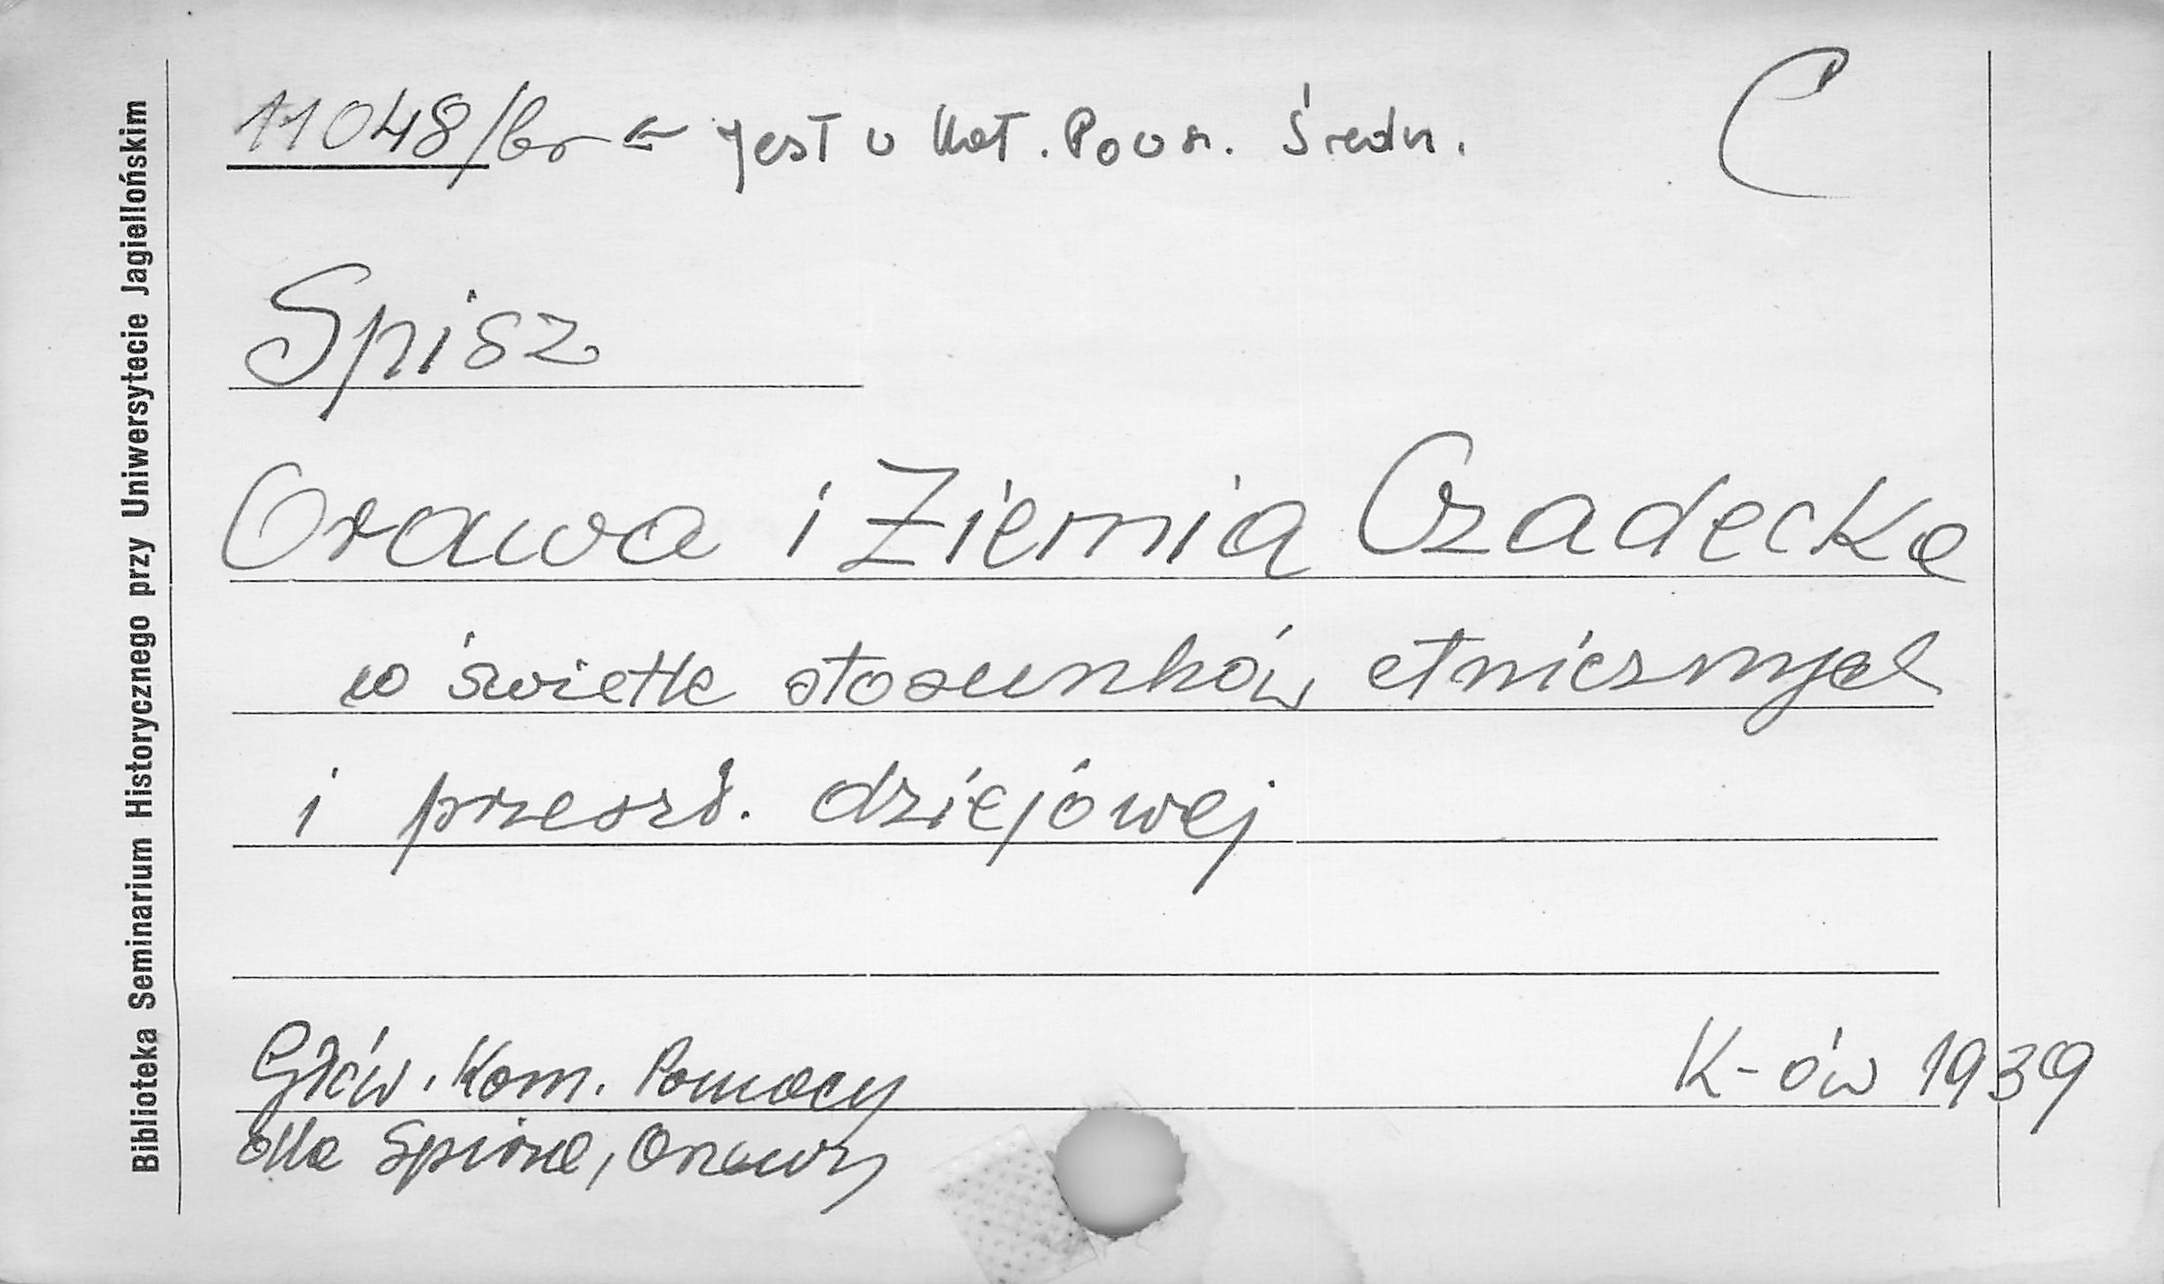 11048/br ← jest w Kat. Pows. Średn.
C
Spisz
Orawa i Ziemia Czadecka
w świetle stosunków etnicznych
i przeszł. dziejowej
Głów. Kom. Pomocy
dla Spisza, Orawy
K-ów 1939
Biblioteka Seminarium Historycznego przy Uniwersytecie Jagiellońskim